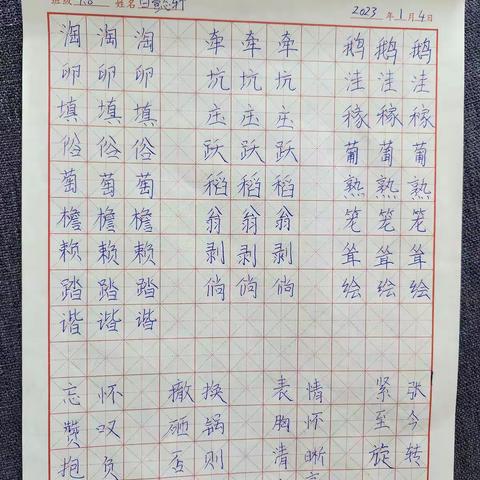 班级 姓名 2023 年 1 月 4 日
淘 淘 淘 牵 牵 牵 鹅 鹅 鹅
卵 卵 卵 坑 坑 坑 洼 洼 洼
填 填 填 庄 庄 庄 稼 稼 稼
俗 俗 俗 跃 跃 跃 葡 葡 葡
萄 萄 萄 稻 稻 稻 熟 熟 熟
檐 檐 檐 翁 翁 翁 笼 笼 笼
赖 赖 赖 剥 剥 剥 耸 耸 耸
踏 踏 踏 倘 倘 倘 绘 绘 绘
谐 谐 谐
忘 怀 撤 换 表 情 紧 张
赞 叹 砸 锅 胸 怀 至 今
抱 负 否 则 清 晰 旋 转